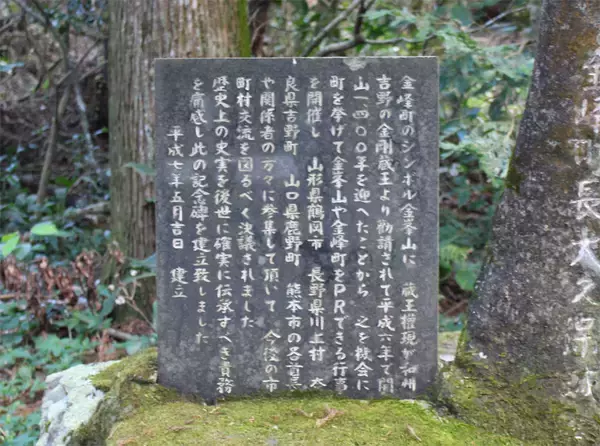 金峰町のシンボル金峯山に　蔵王権現が和州
吉野の金剛蔵王より勧請されて平成六年で開
山一、四〇〇年を迎へたことから　之を機会に
町を挙げて金峯山や金峰町をＰＲできる行事
を開催し　山形県鶴岡市　長野県川上村　奈
良県吉野町　山口県鹿野町　熊本市の各首長
や関係者の方々に参集して頂いて　今後の市
町村交流を図るべく決議されました
歴史上の史実を後世に確実に伝承すべき責務
を痛感し此の記念碑を建立致しました
平成七年五月吉日　建立
町長